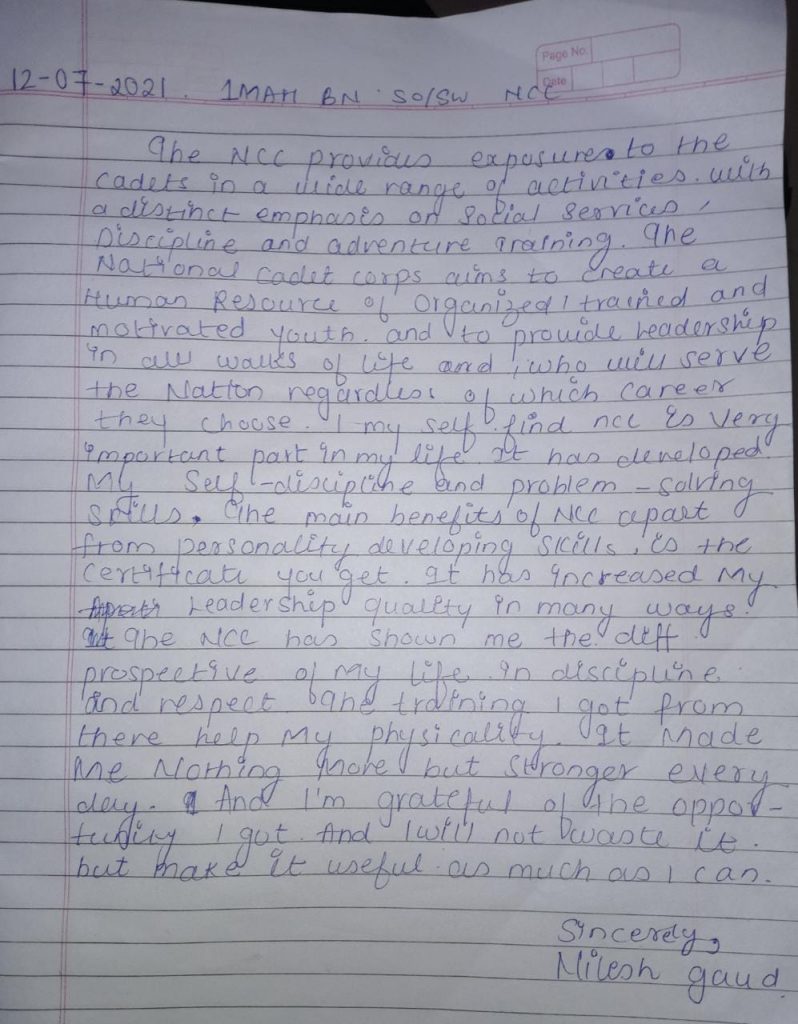 Page No.
Date
12-07-2021. 1 MAH BN SO/SW NCC
The NCC provides exposure to the
cadets in a wide range of activities. with
a distinct emphasis on Social Services,
Discipline and adventure Training. The
National Cadet corps aims to create a
Human Resource of Organized, trained and
motivated youth. and to provide Leadership
in all walks of life and, who will serve
the Nation regardless of which career
they choose. I my self find ncc is very
important part in my life. It has developed
My Self-discipline and problem-solving
skills. The main benefits of NCC apart
from personality developing skills, is the
certificate you get. It has increased My
Leadership quality in many ways.
The NCC has shown me the diff
prospective of My life. in discipline
and respect The training I got from
there help My physicality. It made
Me Nothing more but Stronger every
day. And I'm grateful of the oppor-
tunity I got. And I will not waste it.
but make it useful as much as I can.
Sincerely,
Nilesh gaud.